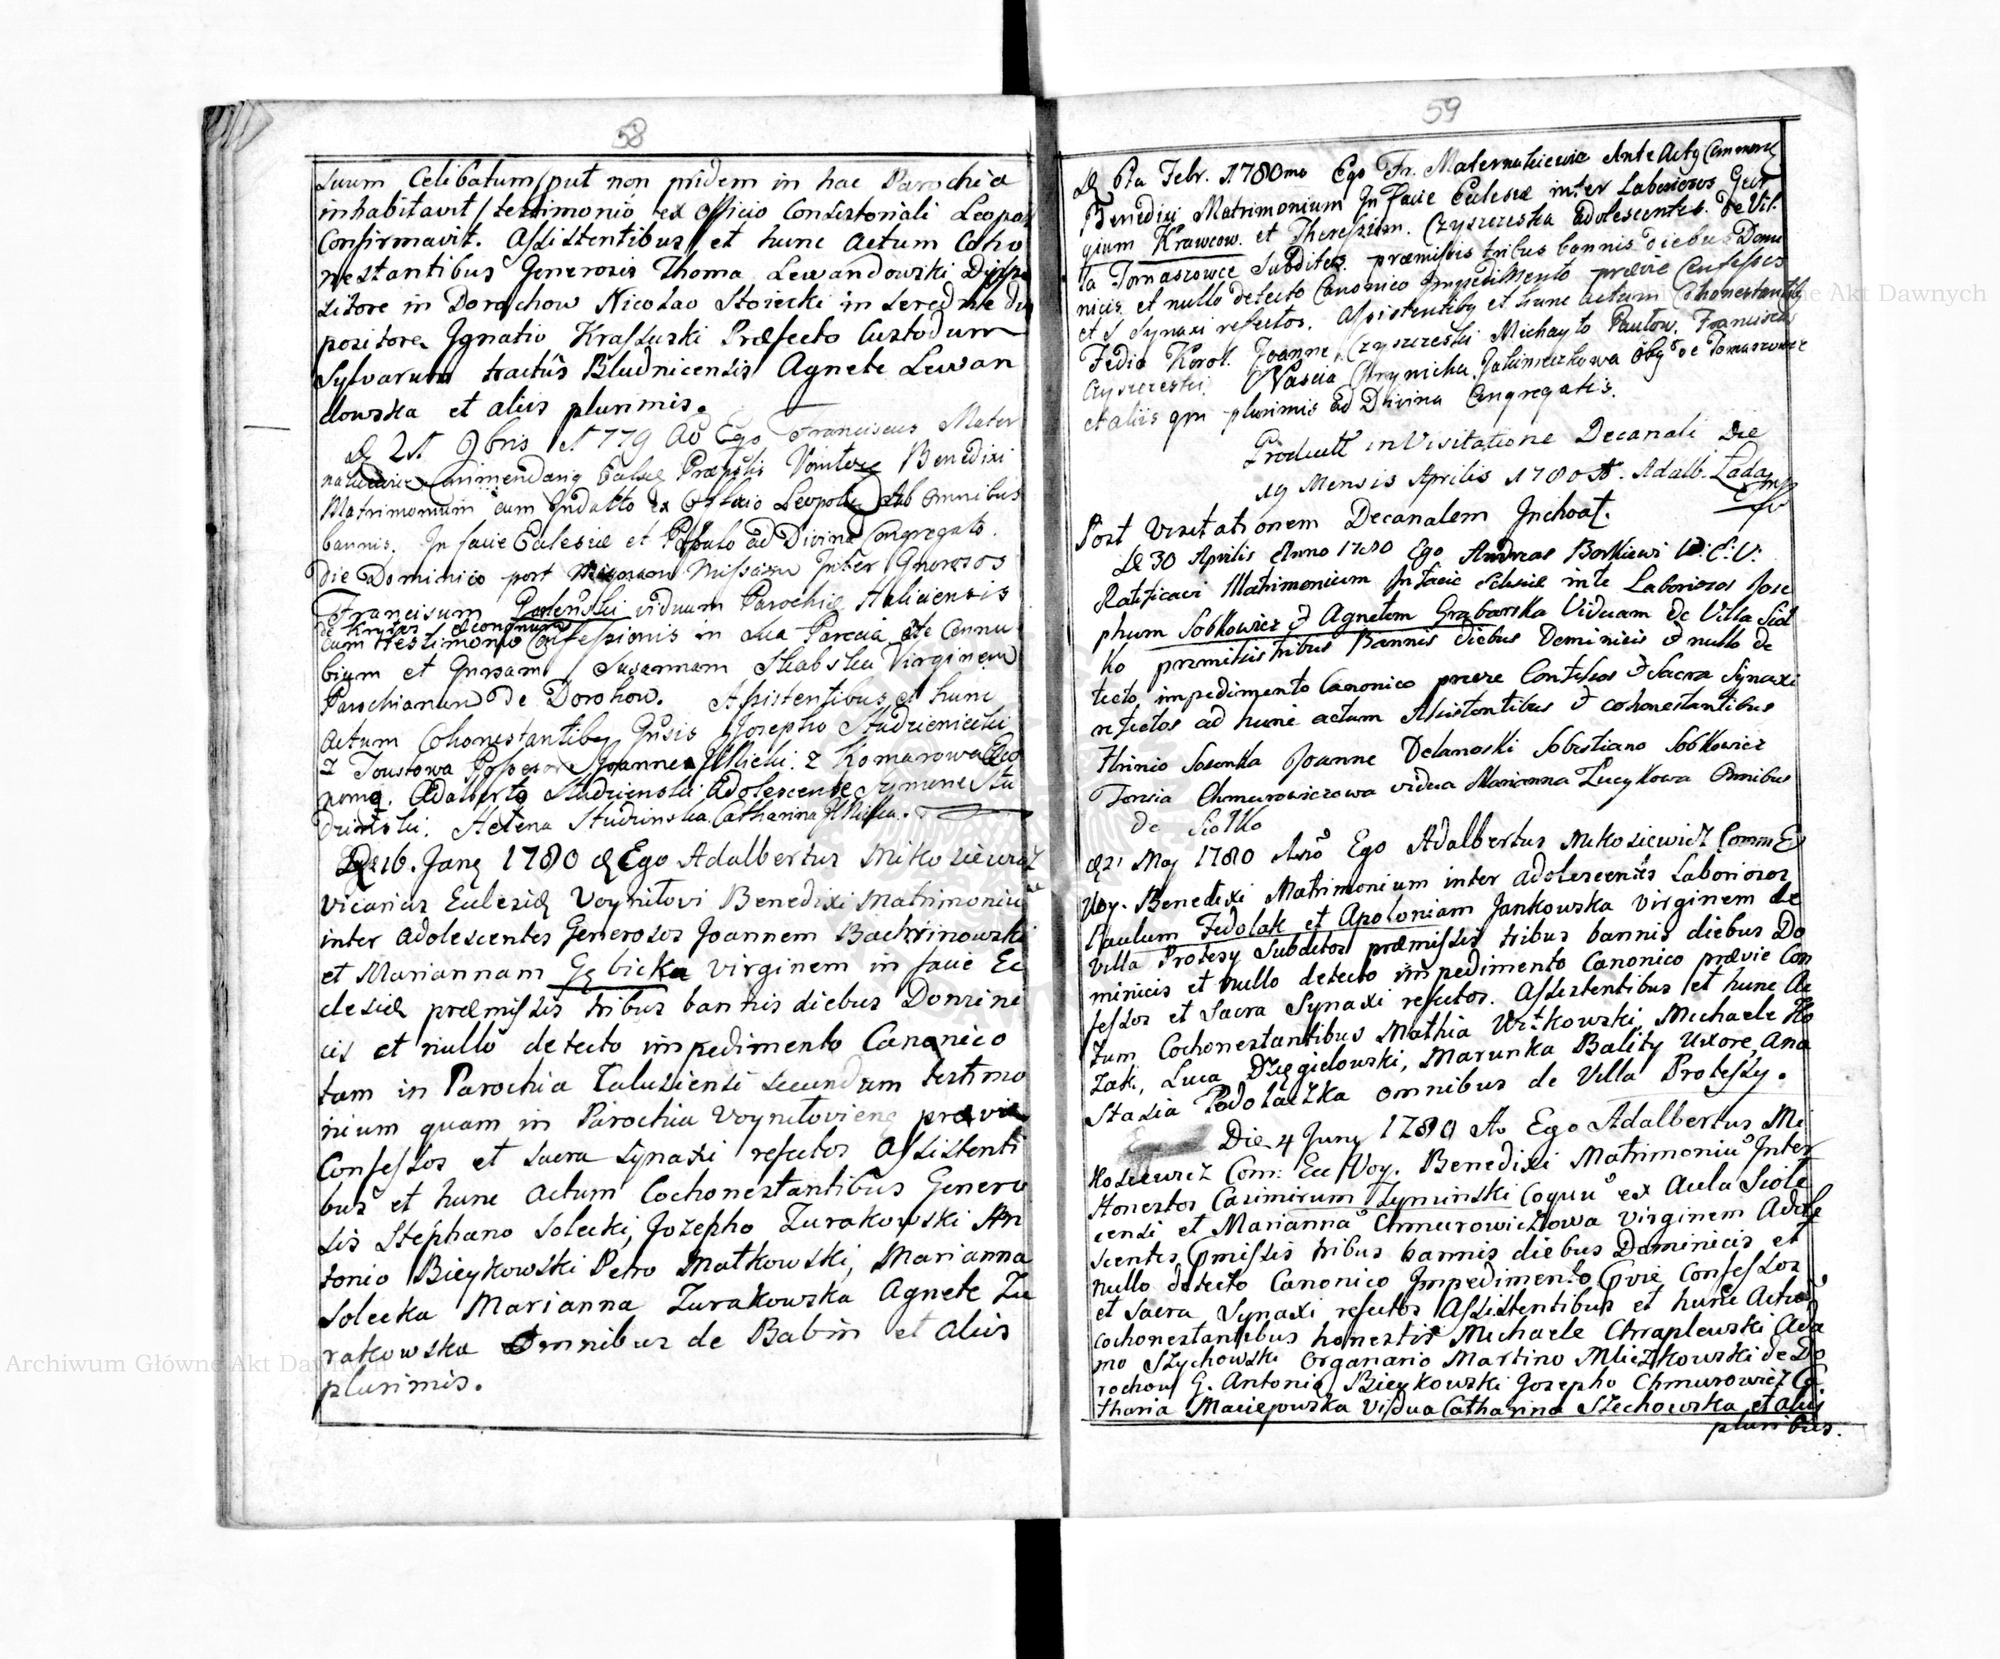 58
suum Celibatum/put non pridem in hac Parochia
inhabitavit/testimonio ex officio Consistoriali Leopol
Confirmavit. Assistentibus et hunc actum Coho
nestantibus Generosis Thoma Lewandowski Dyspo
sitore in Dorochow Nicolao Stoiecki in Seredne dis
positore Ignatio Krassuski Præfecto Custodum
Sylvarum tractûs Bludnicensis Agnete Lewan
dowska et aliis plurimis.
D 21 9bris 1779 Ao Ego Franciscus Mater
Benedixi
Matrimonium cum Indulto ex Officio Leopol ab omnibus
bannis. In facie Eclesiæ et Populo ad Divina Congregato.
die Dominico post Missam Inter Gnorosos
Franciscum viduum Parochiæ Haliciensis
de Kryłos Œconomum
cum testimonio Confessionis in sua Parecia ante Connu
bium et Gnrsam Susannam Skabska Virginem
Parochianam de Dorohow. Assistentibus et hunc
actum Cohonestantibq Gnsis Josepho Studzieniecki
z Toustowa Joanne Illicki z Komarowa Eco
nomo. Adalberto Studzienski adolescente Symone Stu
dzinski. Helena Studzinska Catharina Illicka.
De 16. Janȩ 1780 Ego Adalbertus Mikosiewicz
vicarius Eclesiȩ Voynilovi Benedixi Matrimoniu
inter adolescentes Generosos Joannem Bachrinowski
et Mariannam Gębicka virginem in facie Ec
clesiȩ præmissis tribus bannis diebus Domini
cis et nullo detecto impedimento Canonico
tam in Parochia Calusiensi secundum testimo
nium quam in Parochia Voynilovienȩ prævie
Confessos et sacra Synaxi refectos Assistenti
bus et hunc actum Cochonestantibus Genero
sis Stephano Solecki, Jozepho Zurakowski An
tonio Bieykowski Petro Małkowski, Marianna
Solecka Marianna Zurakowska Agnete Zu
rakowska omnibus de Babin et aliis
plurimis.
59
D 6ta Febr. 1780mo Ego Fr. Maternatkiewicz Ante Actq Commend
Benedixi Matrimonium In facie Eclesiæ inter Laboriosos Geor
gium Krawcow. et Theressiam. Czyszczeska adolescentes. de Vil
la Tomaszowce Subditos. præmissis tribus bannis diebus Domi
nicis et nullo detecto Canonico Impedimento prævie Confessos
et S Synaxi refectos. Assistentibq et hunc actum Cohonestantibq
Fedio Korol. Joanne Czyszczeski Michayło Pautow. Francisco
Czyszczeski. Nascia Hrynicha. Jakimieczkowa oibq de Tomaszowce
et aliis qm plurimis ad Divina Congregatis.
Product in Visitatione Decanali die
19 Mensis Aprilis 1780. Adalb. Lada
Post Visitationem Decanalem Inchoat.
De 30 Aprilis Anno 1780 Ego Andreas Borkiewi V: E: V:
Ratificavi Matrimonium In facie Eclesiæ inte Laboriosos Jose
phum Sobkowicz & Agnetem Grabarska Viduam de Villa Siol
ko præmissis tribus Bannis diebus Dominicis & nullo de
tecto impedimento Canonico prævie Confessos & Sacra Synaxi
refectos ad hunc actum Asistentibus & cohonestantibus
Hrinio Sosenka Joanne Delanoski Sobestiano Sobkowicz
Torsia Chmurowiczowa vidua Marianna Lucykowa Omnibus
de Siolko
21 Maj 1780 Ano Ego Adalbertus Mikosiewicz Comm E
Voy. Benedixi Matrimonium inter adolescentes Laboriosos
Paulum Fedolak et Apoloniam Jankowska virginem de
Villa Protesy Subditos præmissis tribus bannis diebus Do
minicis et nullo detecto impedimento Canonico prævie Con
fessos et Sacra Synaxi refectos. Assistentibus et hunc Ac
tum Cochonestantibus Mathia Witkowski, Michaele Ko
zak, Luca Dzęgielowski, Marunka Bality Uxore, Ana
Stasia Podolaczka omnibus de Villa Protessy.
Die 4 Junȩ 1780 Ao Ego Adalbertus Mi
kosiewicz Com: Ec Voy. Benedixi Matrimoniu Inter
Honestos Casimirum Zyminski Coquu ex Aula Siole
censi et Marianna Chmurowiczowa virginem Adole
scentes pmissis tribus bannis diebus Dominicis et
nullo detecto Canonico Impedimento pvie Confessos
et Sacra Synaxi refectos Assistentibus et hunc Actu
cochonestantibus honestis Michaele Chraplewski Ada
mo Szychowski Organario Martino Mliczkowski de Do
rochow G. Antonio Bieykowski Jozepho Chmurowicz Ca
tharia Maciejowska Vidua Catharina Szechowska et aliis
pluribus.
Archiwum Główne Akt Dawnych
Archiwum Główne Akt Dawnych